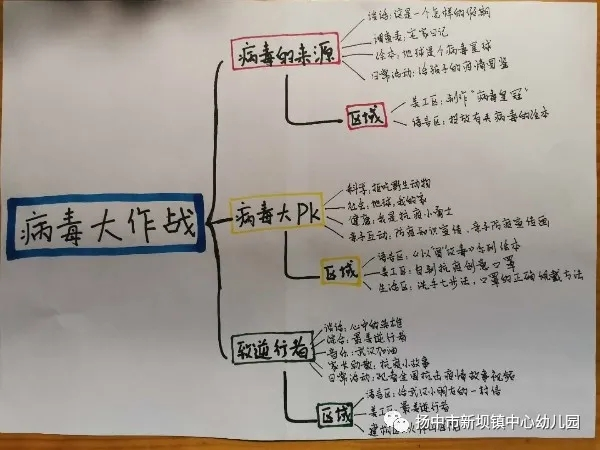 病毒大作战
病毒的来源
谈话:这是一个怎样的假期
调查表:宅家日记
绘本:地球是个病毒星球
日常活动:给孩子的疫情图鉴
区域
美工区:制作“病毒皇冠”
语言区:投放有关病毒的绘本
病毒大PK
科学:拒吃野生动物
社会:地球,我的家
健康:我是抗疫小勇士
亲子互动:防疫知识宣传、亲子防疫宣传画
区域
语言区:
美工区:自制抗疫创意口罩
生活区:洗手七步法,口罩的正确佩戴方法
致逆行者
谈话:心中的英雄
综合:最美逆行者
音乐:武汉加油
家长助教:抗疫小故事
日常活动:观看全国抗击疫情故事视频
区域
语言区:给武汉小朋友的一封信
美工区:最美逆行者
建构区:
扬中市新坝镇中心幼儿园